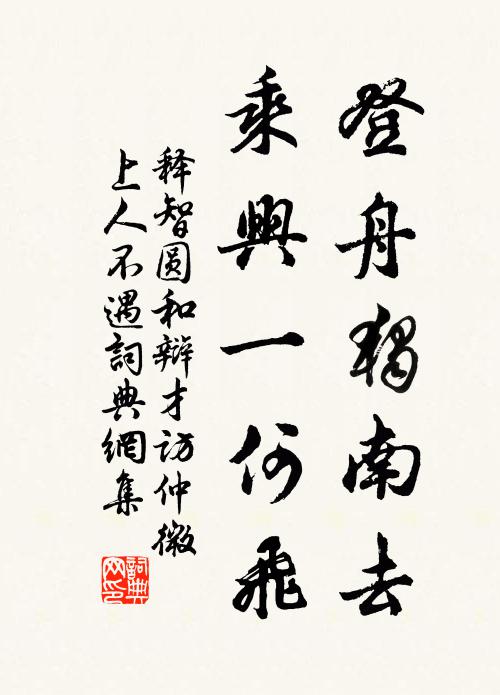 登舟獨南去
乘興一何飛
释智圆和辩才访仲微
上人不遇詞典網集
詞典
网印